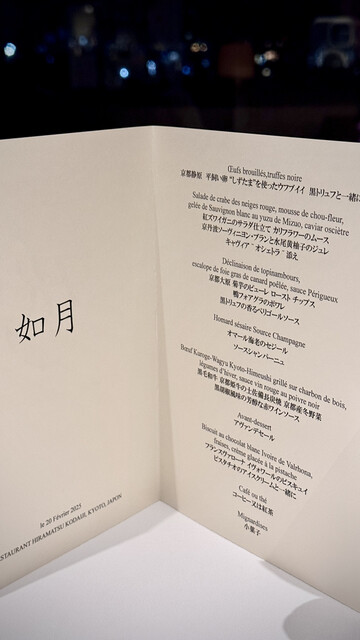 如月
le 20 Février 2025
RESTAURANT HIRAMATSU KODAIJI, KYOTO, JAPON
Œufs brouillés,truffes noire
京都静原 平飼い卵“しずたま”を使ったウフブイイ 黒トリュフと一緒に
Salade de crabe des neiges rouge, mousse de chou-fleur,
gelée de Sauvignon blanc au yuzu de Mizuo, caviar osciètre
紅ズワイガニのサラダ仕立て カリフラワーのムース
京丹波ソーヴィニヨン・ブランと水尾黄柚子のジュレ
キャヴィア“オシェトラ”添え
Déclinaison de topinambours,
escalope de foie gras de canard poêlée, sauce Périgueux
京都大原 菊芋のピューレ ロースト チップス
鴨フォアグラのポワレ
黒トリュフの香るペリゴールソース
Homard sésaire Source Champagne
オマール海老のセジール
ソースシャンパーニュ
Bœuf Karoge-Wagyu Kyoto-Himeushi grillé sur charbon de bois,
légumes d'hiver, sauce vin rouge au poivre noir
黒毛和牛 京都姫牛の土佐備長炭焼 京都産冬野菜
黒胡椒風味の芳醇な赤ワインソース
Avant-dessert
アヴァンデセール
Biscuit au chocolat blanc Ivoire de Valrhona,
fraises, crème glacée à la pistache
フランスヴァローナ イヴォワールのビスキュイ
ピスタチオのアイスクリームと一緒に
Café ou thé
コーヒー又は紅茶
Mignardises
小菓子